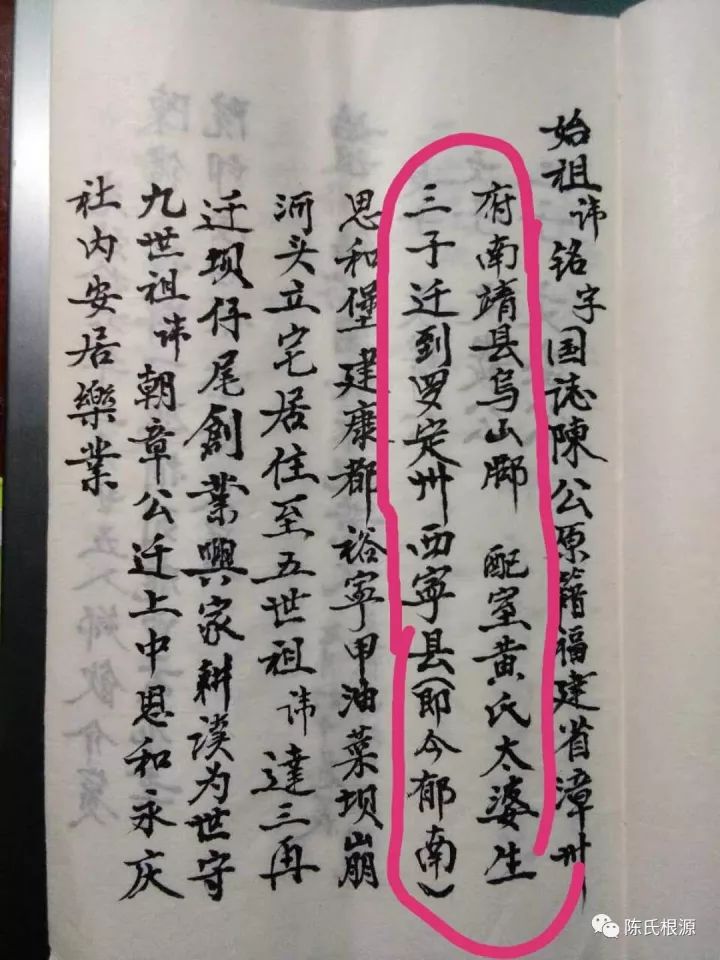 始祖讳铭字国誌陳公原籍福建省漳州
府南靖县乌山鄉 配室黄氏太婆生
三子迁到罗定州西宁县(即今郁南)
思和堡建康都裕寧甲油菜坝崩
河头立宅居住至五世祖讳達三再
迁坝仔尾創業興家耕讀为世守
九世祖讳朝章公迁上中思和永庆
社内安居樂業
陈氏根源